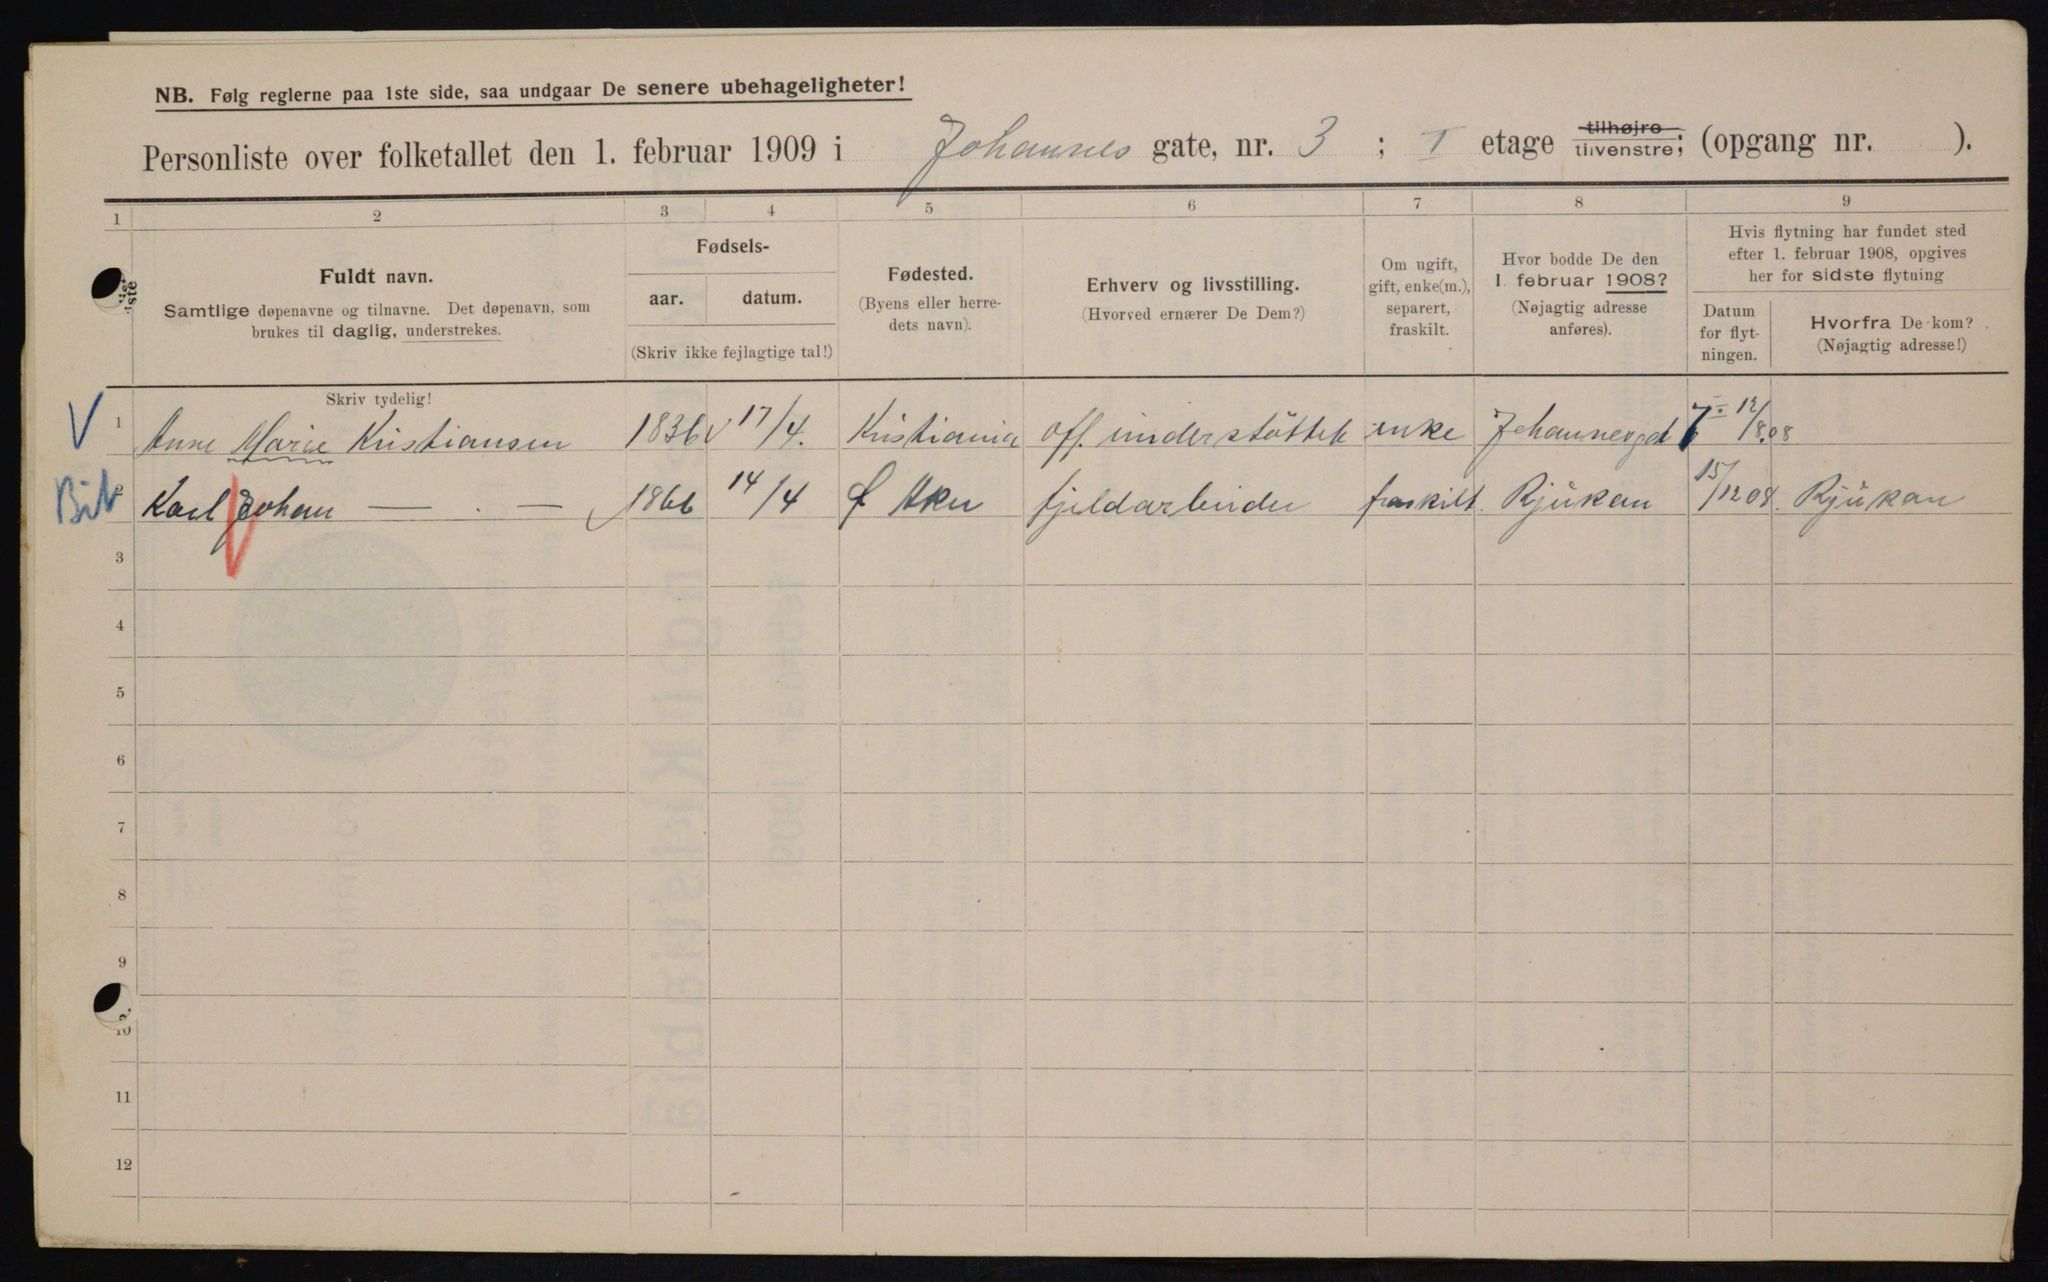 NB. Følg reglerne paa 1ste side, saa undgaar De senere ubehageligheter!
Personliste over folketallet den 1. februar 1909 i Johannes gate, nr. 3 ; I etage tilhøjre tilvenstre; (opgang nr. ).
1 2 3 4 5 6 7 8 9
Fuldt navn.
Samtlige døpenavne og tilnavne. Det døpenavn, som
brukes til daglig, understrekes.
Fødsels-
aar. datum.
(Skriv ikke fejlagtige tal!)
Fødested.
(Byens eller herre-
dets navn).
Erhverv og livsstilling.
(Hvorved ernærer De Dem?)
Om ugift,
gift, enke(m.),
separert,
fraskilt.
Hvor bodde De den
1. februar 1908?
(Nøjagtig adresse
anføres).
Hvis flytning har fundet sted
efter 1. februar 1908, opgives
her for sidste flytning
Datum
for flyt-
ningen.
Hvorfra De kom?
(Nøjagtig adresse!)
Skriv tydelig!
V 1 Anne Marie Kristiansen 1836 17/4. Kristiania off. understöttet enke Johannesgd 7 12/8.08
2 Karl Johan — . — 1866 14/4 Ø Aker fjeldarbeider fraskilt. Rjukan 15/12 08. Rjukan
3
4
5
6
7
8
9
10
11
12